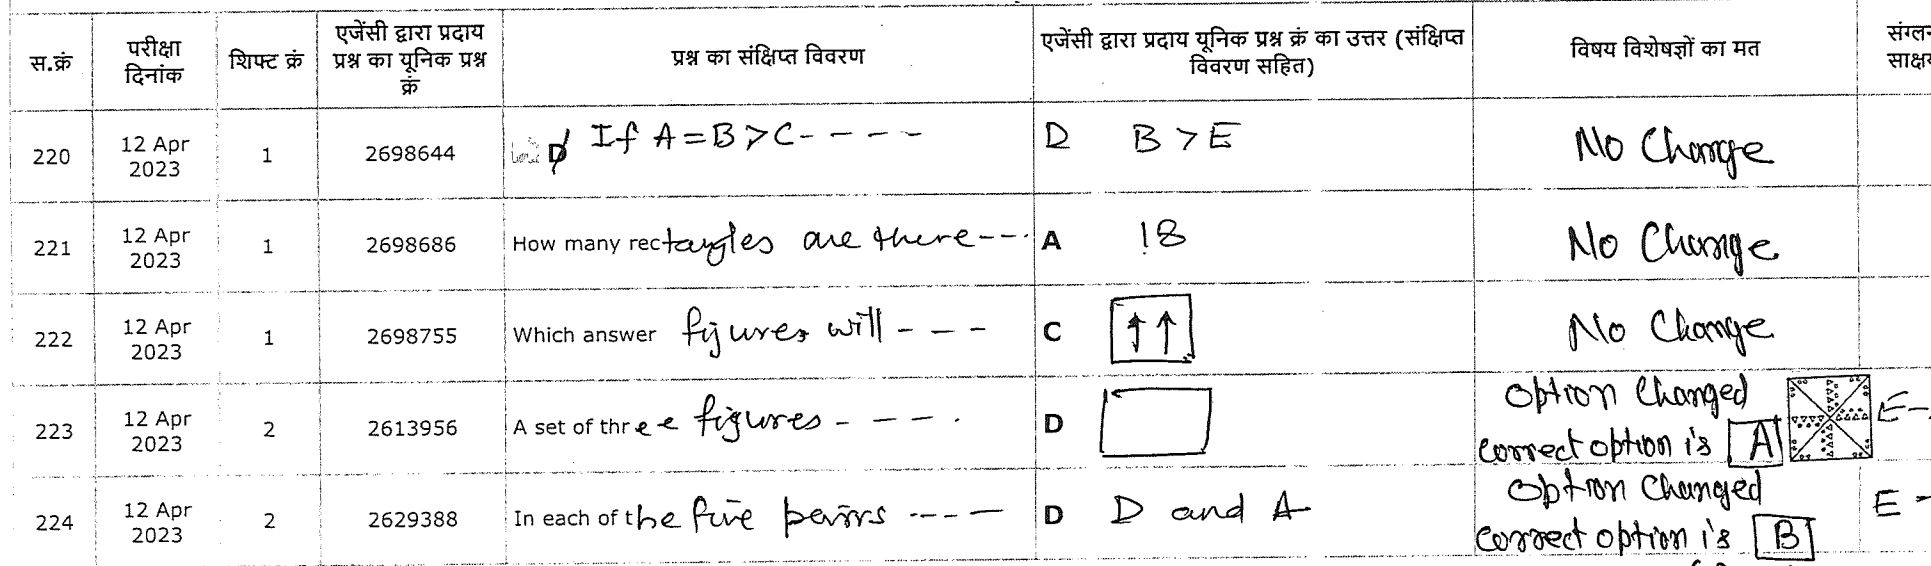 स.क्रं परीक्षा दिनांक शिफ्ट क्रं एजेंसी द्वारा प्रदाय प्रश्न का यूनिक प्रश्न क्रं प्रश्न का संक्षिप्त विवरण एजेंसी द्वारा प्रदाय यूनिक प्रश्न क्रं का उत्तर (संक्षिप्त विवरण सहित) विषय विशेषज्ञों का मत
220 12 Apr 2023 1 2698644 If A=B>C---- D B>E No Change
221 12 Apr 2023 1 2698686 How many rectangles are there--- A 18 No Change
222 12 Apr 2023 1 2698755 Which answer figures will --- C No Change
223 12 Apr 2023 2 2613956 A set of three figures - --. D option Changed correct option is A E-
224 12 Apr 2023 2 2629388 In each of the five pairs ---- D D and A option Changed correct option is B E-